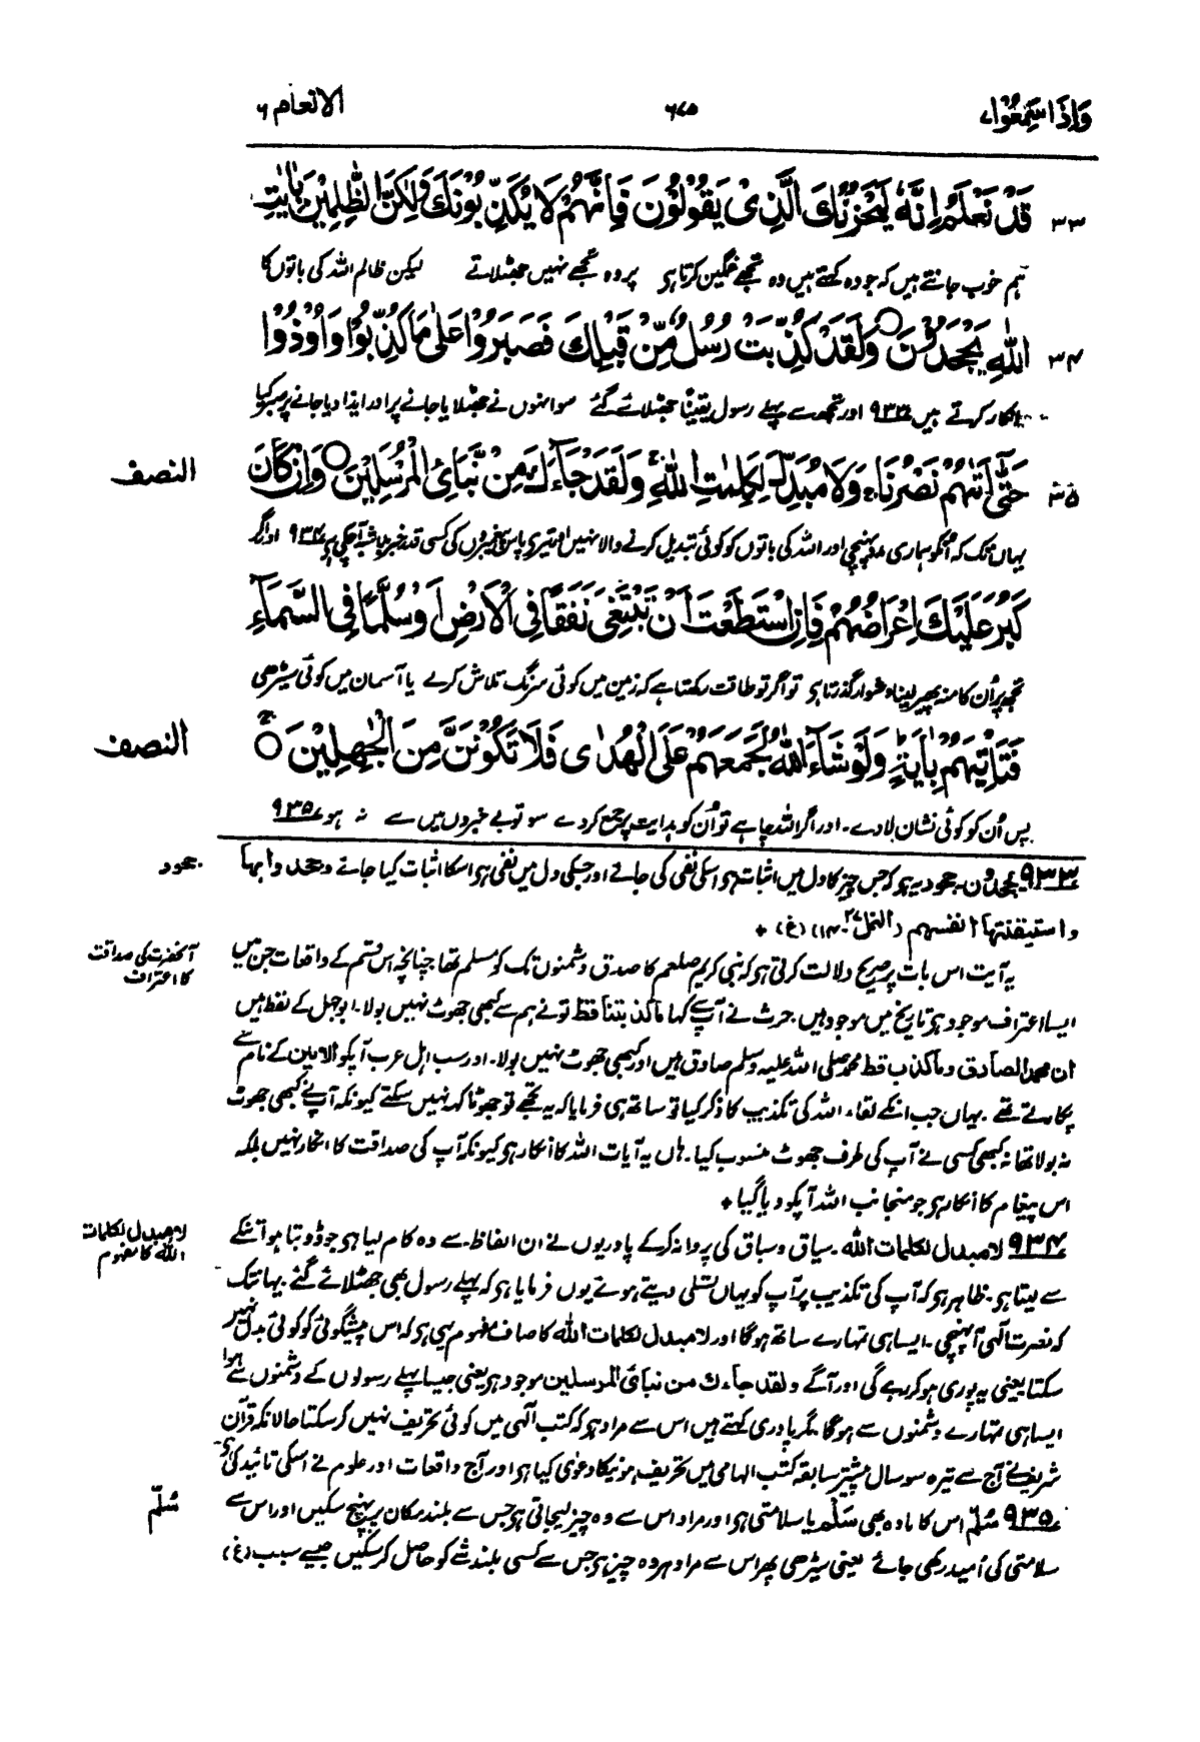 وَاِذَا سَمِعُوْا ۷
۶۷۵
الانعام ۶
۳۳ قَدْ نَعْلَمُ اِنَّهٗ لَيَحْزُنُكَ الَّذِىْ يَقُوْلُوْنَ فَاِنَّهُمْ لَا يُكَذِّبُوْنَكَ وَلٰكِنَّ الظّٰلِمِيْنَ بِاٰيٰتِ
ہم خوب جانتے ہیں کہ جو وہ کہتے ہیں وہ تجھے غمگین کرتا ہی پر وہ تجھے نہیں جھٹلاتے لیکن ظالم اللہ کی باتوں کا
۳۴ اللّٰهِ يَجْحَدُوْنَ ○ وَلَقَدْ كُذِّبَتْ رُسُلٌ مِّنْ قَبْلِكَ فَصَبَرُوْا عَلٰى مَا كُذِّبُوْا وَاُوْذُوْا
انکار کرتے ہیں ۹۳۳ اور تجھ سے پہلے رسول یقیناً جھٹلائے گئے سو انہوں نے جھٹلایا جانے پر اور ایذا دیا جانے پر صبر کیا
۳۵ حَتّٰٓى اَتٰىهُمْ نَصْرُنَا ۚ وَلَا مُبَدِّلَ لِكَلِمٰتِ اللّٰهِ ۚ وَلَقَدْ جَآءَكَ مِنْ نَّبَاِى الْمُرْسَلِيْنَ ○ وَاِنْ كَانَ
النصف
یہاں تک کہ انکو ہماری مدد پہنچی اور اللہ کی باتوں کو کوئی تبدیل کرنے والا نہیں اور تیری پاس پیغمبروں کی کسی قدر خبر بلاشبہ آچکی ہی ۹۳۴ اور اگر
كَبُرَ عَلَيْكَ اِعْرَاضُهُمْ فَاِنِ اسْتَطَعْتَ اَنْ تَبْتَغِىَ نَفَقًا فِى الْاَرْضِ اَوْ سُلَّمًا فِى السَّمَآءِ
تجھ پر اُن کا منہ پھیر لینا دشوار گذرتا ہی تو اگر تو طاقت رکھتا ہے کہ زمین میں کوئی سرنگ تلاش کرے یا آسمان میں کوئی سیڑھی
فَتَاْتِيَهُمْ بِاٰيَةٍ ؕ وَلَوْ شَآءَ اللّٰهُ لَجَمَعَهُمْ عَلَى الْهُدٰى فَلَا تَكُوْنَنَّ مِنَ الْجٰهِلِيْنَ ○
النصف
پس اُن کو کوئی نشان لادے۔ اور اگر اللہ چاہے تو اُن کو ہدایت پر جمع کردے سو تو بے خبروں میں سے نہ ہو ۹۳۵
۹۳۳ یجحدون۔ جحود یہ ہو کہ جس چیز کا دل میں اثبات ہو اسکی نفی کی جائے اور جسکی دل میں نفی ہو اسکا اثبات کیا جائے وجحدوا بہا
جحود
واستیقنتہا انفسہم (النمل ۲۷۔۱۴) (غ) ٭
یہ آیت اس بات پر صریح دلالت کرتی ہو کہ نبی کریم صلعم کا صدق دشمنوں تک کو مسلم تھا چنانچہ اس قسم کے واقعات جن میں
آنحضرت کی صداقت
کا اعتراف
ایسا اعتراف موجود ہو تاریخ میں موجود ہیں۔ حرث نے آپ سے کہا ما کذبتنا قط تو نے ہم سے کبھی جھوٹ نہیں بولا۔ ابوجہل کے لفظ ہیں
ان محمد الصادق وما کذب قط محمد صلی اللہ علیہ وسلم صادق ہیں اور کبھی جھوٹ نہیں بولا۔ اور سب اہل عرب آپکو الامین کے نام سے
پکارتے تھے۔ یہاں جب انکے لقاء اللہ کی تکذیب کا ذکر کیا تو ساتھ ہی فرمایا کہ یہ تجھے تو جھوٹا کہہ نہیں سکتے کیونکہ آپ نے کبھی جھوٹ
نہ بولا تھا نہ کبھی کسی نے آپ کی طرف جھوٹ منسوب کیا۔ ہاں یہ آیات اللہ کا انکار ہو کیونکہ آپ کی صداقت کا انکار نہیں بلکہ
اس پیغام کا انکار ہو جو منجانب اللہ آپکو دیا گیا ٭
۹۳۴ لا مبدل لکلمات اللہ۔ سیاق و سباق کی پروا نہ کرکے پادریوں نے ان الفاظ سے وہ کام لیا ہو جو ڈوبتا ہوا تنکے
لا مبدل لکلمات
اللہ کا مفہوم
سے لیتا ہو۔ ظاہر ہو کہ آپ کی تکذیب پر آپ کو یہاں تسلی دیتے ہوئے یوں فرمایا ہو کہ پہلے رسول بھی جھٹلائے گئے۔ یہانتک
کہ نصرت الٰہی آپہنچی۔ ایسا ہی تمہارے ساتھ ہوگا اور لا مبدل لکلمات اللہ کا صاف مفہوم یہی ہو کہ اس پیشگوئی کو کوئی بدل نہیں
سکتا یعنی یہ پوری ہوکر رہے گی اور آگے ولقد جاءک من نبائ المرسلین موجود ہو یعنی جیسا پہلے رسولوں کے دشمنوں سے ہوا
ایسا ہی تمہارے دشمنوں سے ہوگا۔ مگر پادری کہتے ہیں اس سے مراد ہو کہ کتب الٰہی میں کوئی تحریف نہیں کرسکتا حالانکہ قرآن
شریف نے آج سے تیرہ سو سال پیشتر سابقہ کتب الہامی میں تحریف ہونیکا دعوٰی کیا ہو اور آج واقعات اور علوم نے اسکی تائید کی ہی
۹۳۵ سُلَّم اس کا مادہ بھی سَلْم یا سلامتی ہو اور مراد اس سے وہ چیز لیجاتی ہو جس سے بلند مکان پر پہنچ سکیں اور اس سے
سُلَّم
سلامتی کی اُمید رکھی جائے یعنی سیڑھی پھر اس سے مراد ہر وہ چیز ہو جس سے کسی بلند شے کو حاصل کرسکیں جیسے سبب (غ)